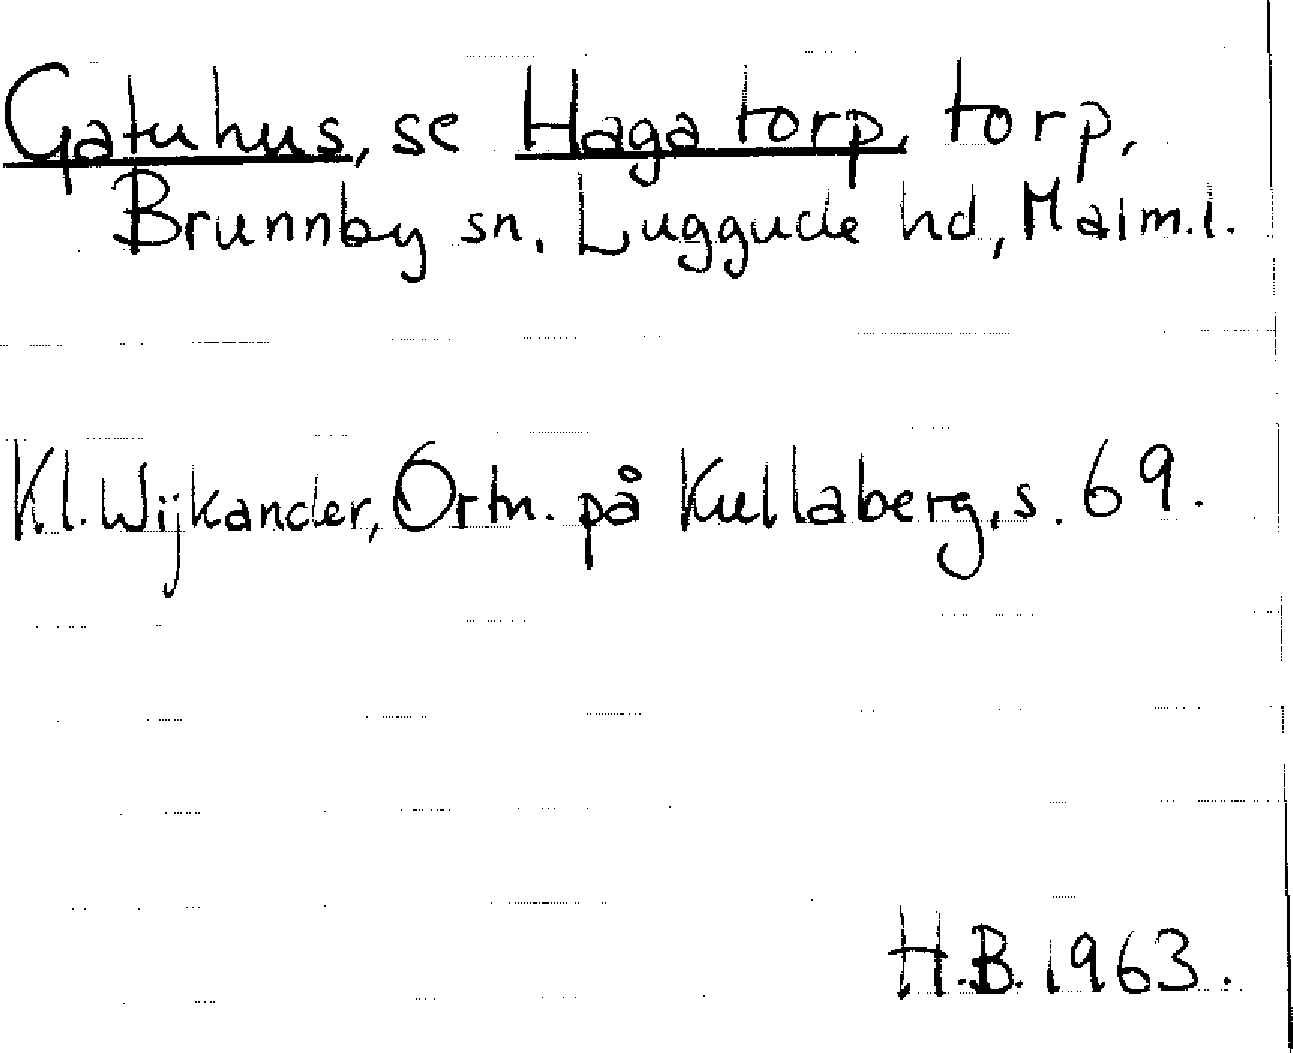 Gatuhus, se Hagatorp, torp,
Brunnby sn. Luggude hd, Malm.l.
Kl. Wijkander, Ortn. på Kullaberg, s. 69.
H.B. 1963.